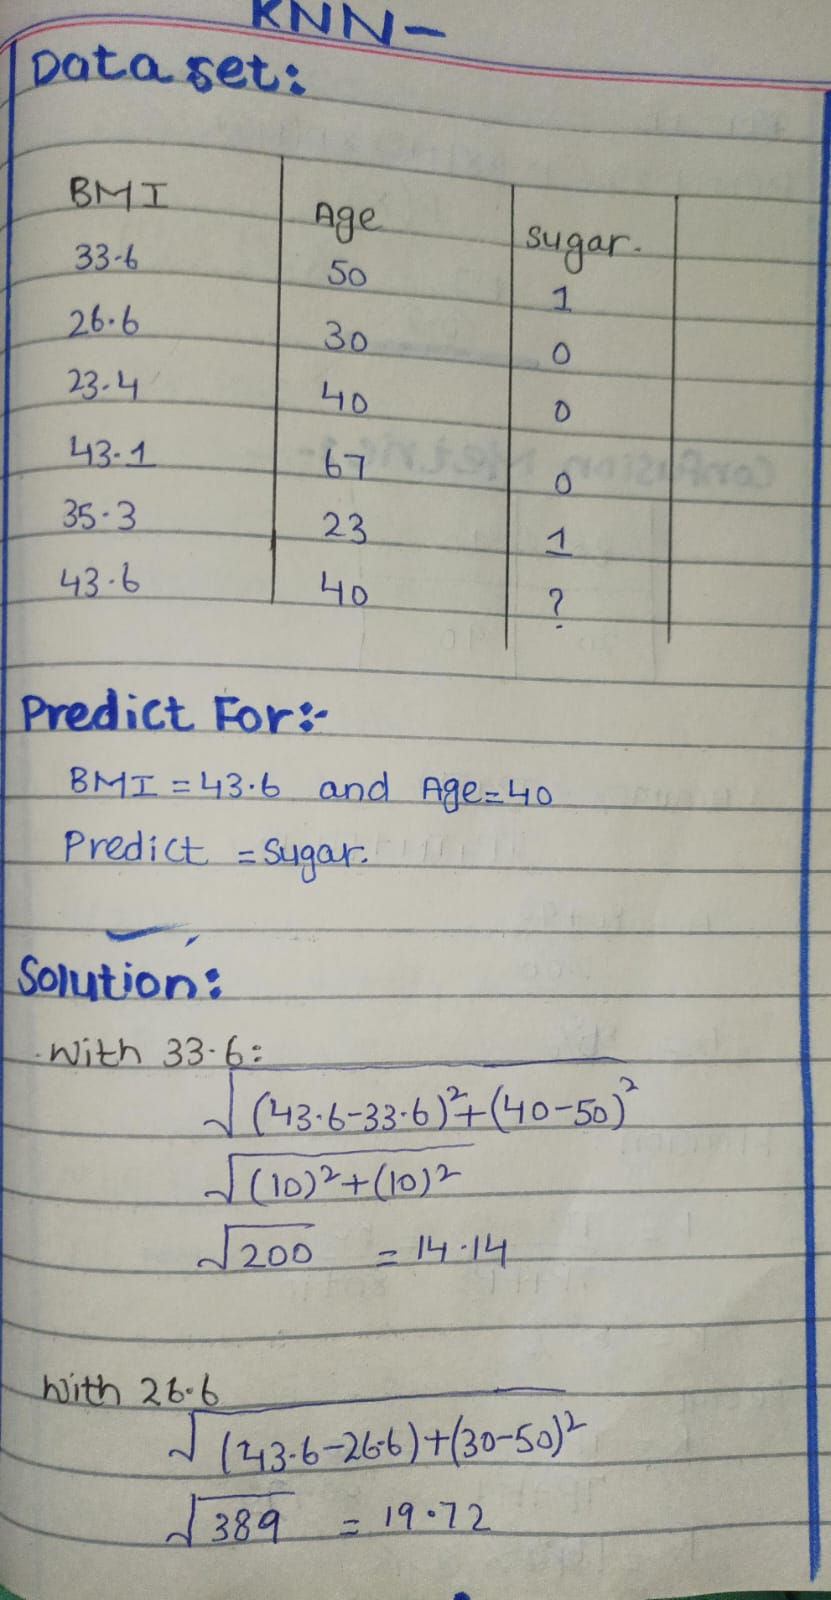 KNN-
Data set:
BMI Age Sugar.
33.6 50 1
26.6 30 0
23.4 40 0
43.1 67 0
35.3 23 1
43.6 40 ?
Predict For:-
BMI = 43.6 and Age=40
Predict = Sugar.
Solution:
With 33.6:
√(43.6-33.6)²+(40-50)²
√(10)²+(10)²
√200 = 14.14
With 26.6
√(43.6-26.6)+(30-50)²
√389 = 19.72